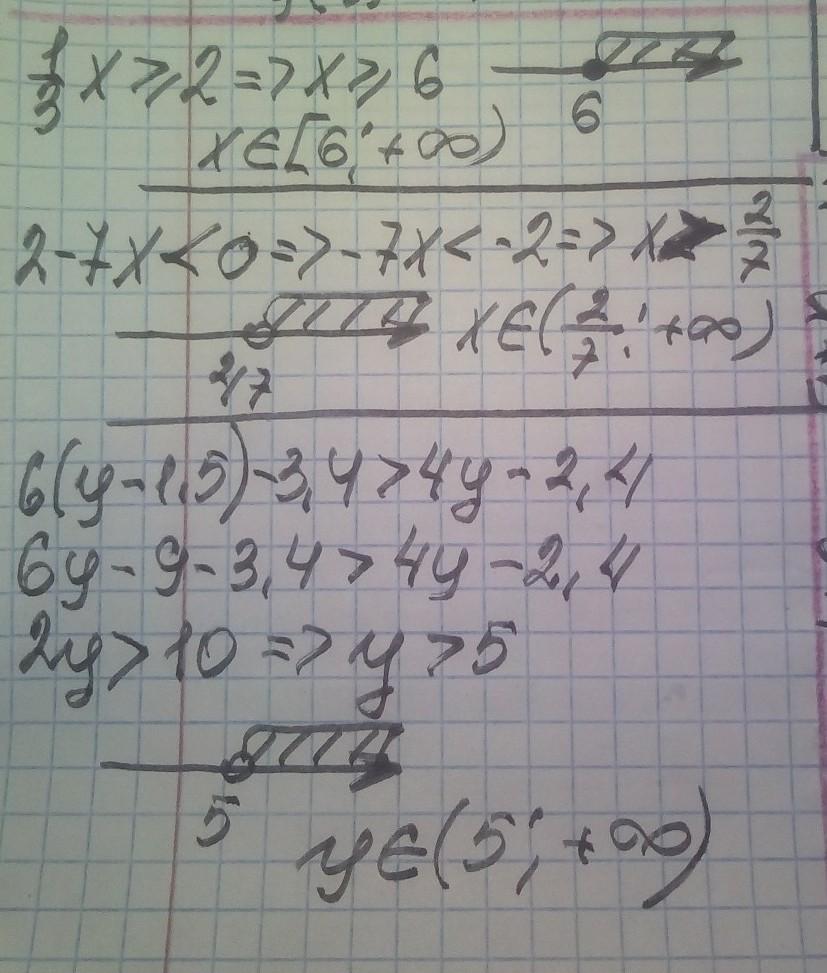 1/3 x ⩾ 2 => x ⩾ 6
6
x ∈ [6; +∞)
2 - 7x < 0 => -7x < -2 => x > 2/7
2/7
x ∈ (2/7; +∞)
6(y - 1,5) - 3,4 > 4y - 2,4
6y - 9 - 3,4 > 4y - 2,4
2y > 10 => y > 5
5
y ∈ (5; +∞)